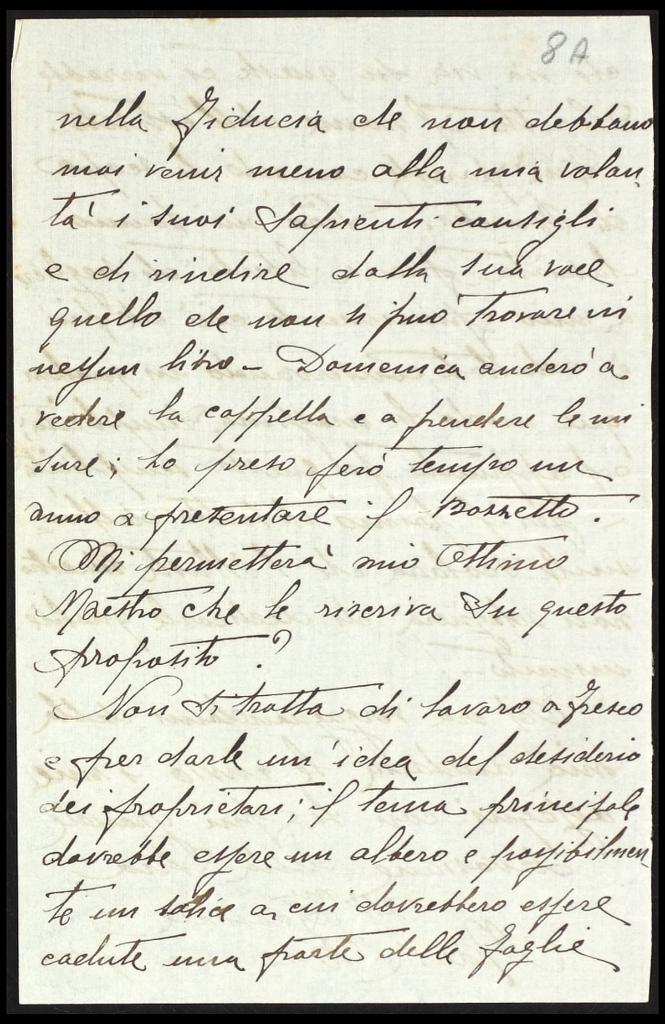 8A
nella fiducia che non debbano
mai venir meno alla mia volon
tà i suoi sapienti consigli
e di rindire dalla sua voce
quello che non si può trovare in
nessun libro – Domenica anderò a
vedere la cappella e a prendere le mi
sure; ho preso però tempo un
anno a presentare il bozzetto.
Mi permetterà mio Ottimo
Maestro che le riscriva su questo
proposito?
Non si tratta di lavoro a fresco
e per darle un'idea del desiderio
dei proprietari; il tema principale
dovrebbe essere un albero e possibilmen
te un salice a cui dovrebbero essere
cadute una parte delle foglie